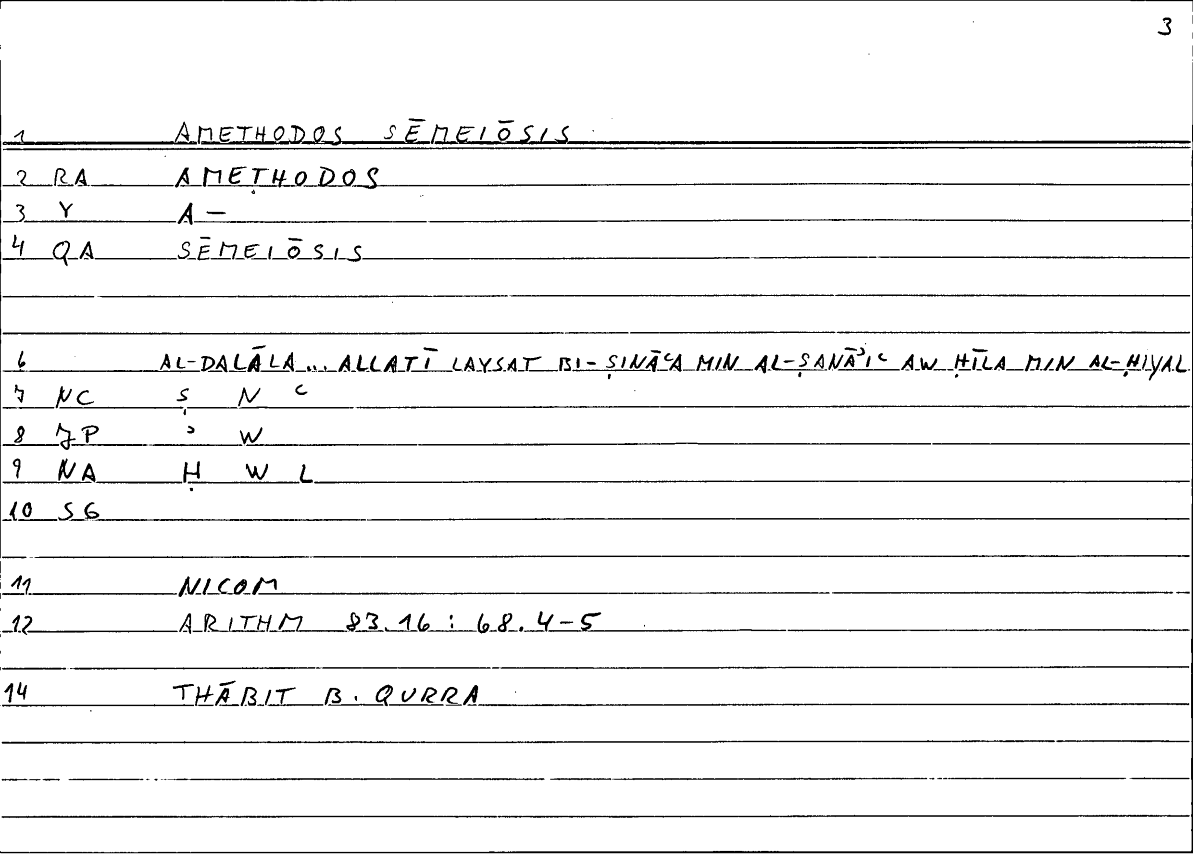 3
1 AMETHODOS SĒMEIŌSIS
2 RA AMEṬHODOS
3 Y A –
4 QA SĒMEIŌSIS
6 AL-DALĀLA ... ALLATĪ LAYSAT BI-ṢINĀʿA MIN AL-ṢANĀʾIʿ AW ḤĪLA MIN AL-ḤIYAL
7 NC Ṣ N ʿ
8 JP ʾ W
9 NA Ḥ W L
10 SG
11 NICOM
12 ARITHM 83.16 : 68.4-5
14 THĀBIT B. QURRA